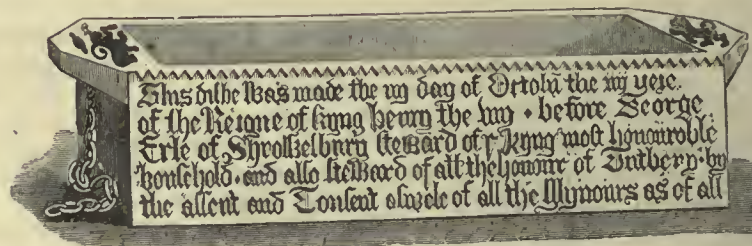 This dishe was made the iiij day of Octobr the iiij yere
of the Reigne of kyng henry the viij · before George
Erle of Shrowesbury steward of yͤ kyng most honourable
household · and also steward of all the honour of Tutbery · by
the assent and Consent aswele of all the Mynours as of all